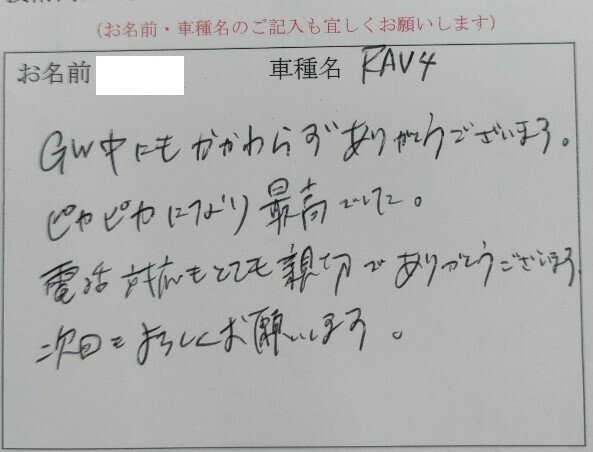 (お名前・車種名のご記入も宜しくお願いします)
お名前 車種名 RAV4
GW中にもかかわらずありがとうございます。
ピカピカになり最高でした。
電話対応もとても親切でありがとうございます。
次回もよろしくお願いします。